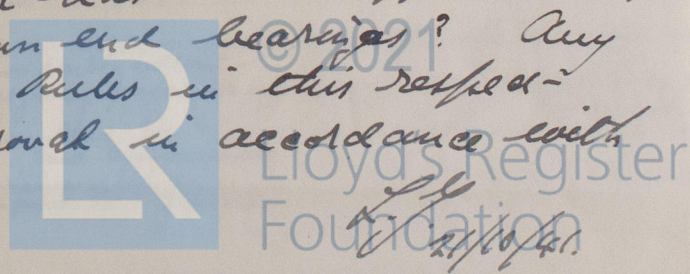 end bearings? Any
Rules in this respect
in accordance with
21/10/41.
© 2021
LR
Lloyd's Register
Foundation